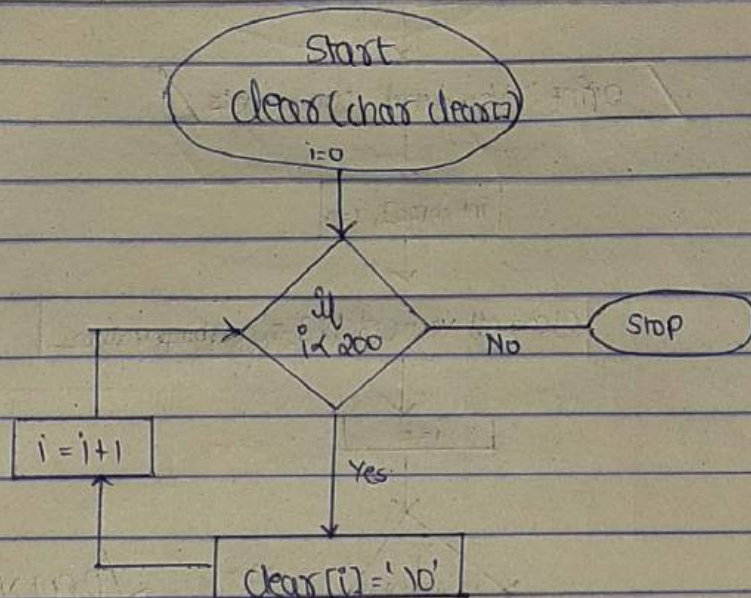 Start
clear(char clear[])
i=0
if
i< 200
No
Stop
i = i+1
Yes
clear[i]='\0'